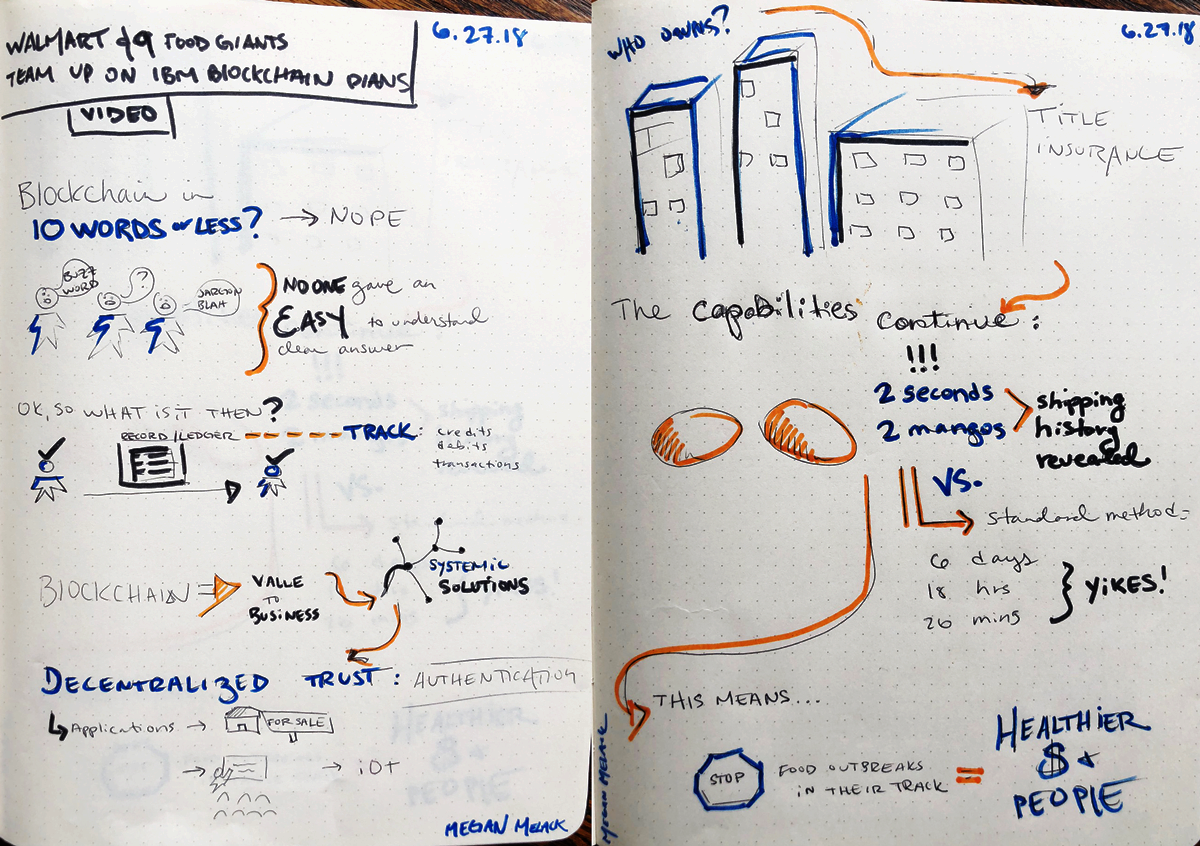 WALMART & 9 FOOD GIANTS
TEAM UP ON IBM BLOCKCHAIN PLANS
VIDEO
6.27.18
Blockchain in
10 WORDS or LESS? → NOPE
BUZZ
WORD
?
JARGON
BLAH
NO ONE gave an
EASY to understand
clear answer
OK, SO WHAT IS IT THEN?
RECORD/LEDGER
TRACK:
credits
debits
transactions
BLOCKCHAIN =
VALUE
TO
BUSINESS
SYSTEMIC
SOLUTIONS
DECENTRALIZED TRUST: AUTHENTICATION
Applications →
FOR SALE
→ iOt
MEGAN MELACK
WHO OWNS?
6.27.18
TITLE
INSURANCE
The capabilities continue:
!!!
2 seconds
2 mangos
shipping
history
revealed
VS.
standard method=
6 days
18 hrs
26 mins
YIKES!
THIS MEANS...
STOP
FOOD OUTBREAKS
IN THEIR TRACK
=
HEALTHIER
$ +
PEOPLE
MEGAN MELACK